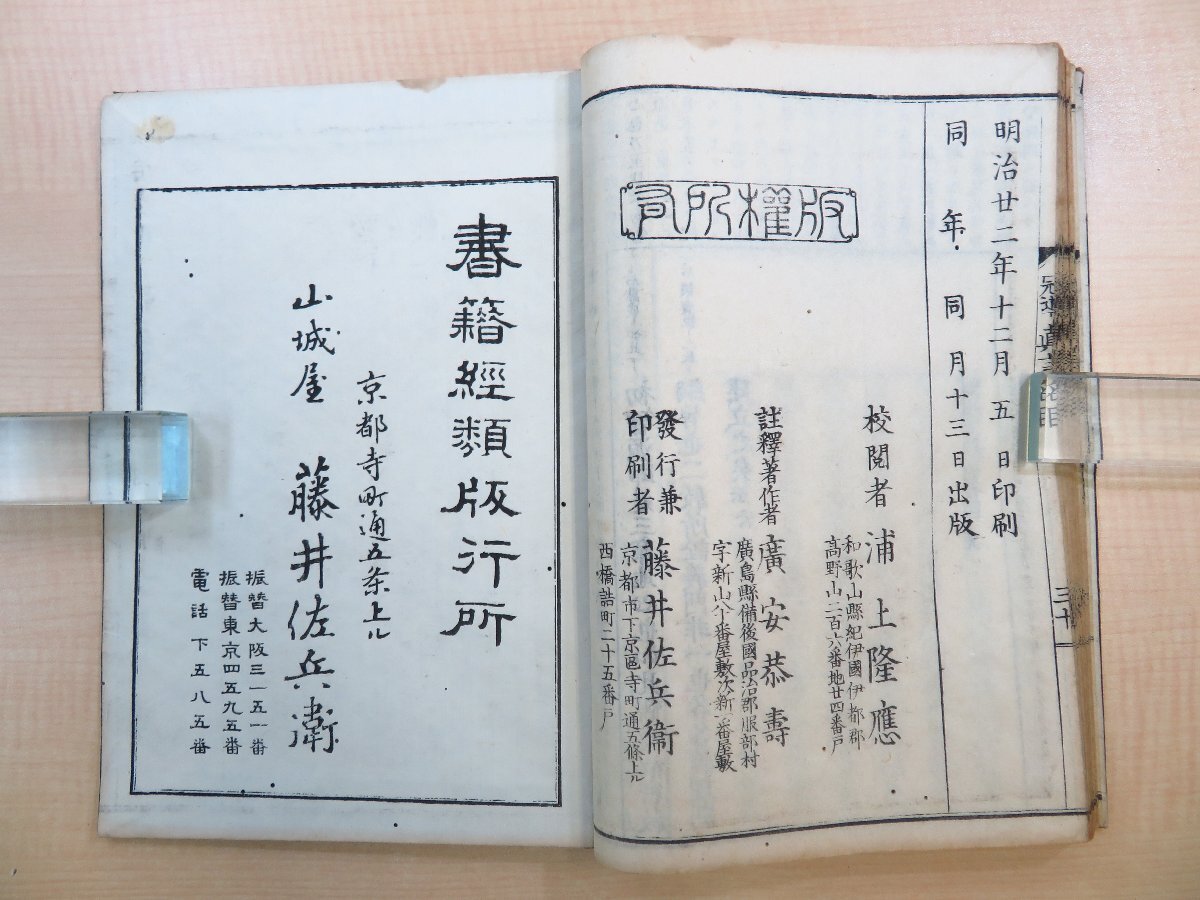 明治廿二年十二月五日印刷
同年同月十三日出版
版權所有
校閲者
浦上隆應
和歌山縣紀伊國伊都郡
高野山二百六番地廿四番戸
註釋著作者
廣安恭壽
廣島縣備後國品治郡服部村
發行兼
印刷者
藤井佐兵衞
京都市下京區寺町通五條上ル
西橋詰町二十五番戸
三十
書籍經類版行所
京都寺町通五条上ル
山城屋 藤井佐兵衞
振替大阪三一五一番
振替東京四五九五番
電話下五八五番